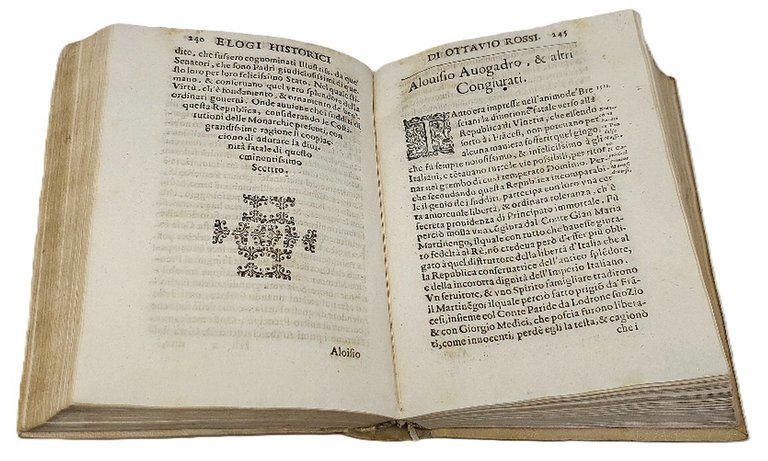 240 ELOGI HISTORICI
dito, che fussero cognominati Illustriss. da que'
Senatori, che sono Padri giudiciosissimi di que-
sto loro per loro felicissimo Stato. Nel quale si
mano, & conseruano quel vero splendore della
Virtù, ch'è fondamento, & ornamento de gl'
ordinati gouerni. Onde auuiene che i sudditi di
questa Republica, considerando le Costi-
tutioni delle Monarchie presenti, con
grandissime ragione si compiac-
ciono di adorare la diui-
nità fatale di questo
eminentissimo
Scettro.
Aloisio
DI OTTAVIO ROSSI. 245
Alouisio Auogadro, & altri
Congiurati.
TAnto era impresse nell'animo de' Bre 1512.
sciani la diuotione fatale verso alla
Republica di Vinetia, che essendo
sorto à i Frácesi, non poteuano per
alcuna maniera sofferir quel giogo,
che fù sempre noiosissimo, & infelicissimo à gli
Italiani, e tétauano tutte le vie possibili, per ritor
nar nel grembo di cosi temperato Dominio. Per-
che secondando questa Republica incomparabi-
le il genio de i sudditi, partecipa con loro vna cer
ta amoreuole libertà, & ordinata toleranza, ch'è
secreta prouidenza di Principato immortale. Fù
perciò mossa vna giura dal Conte Gian Maria
Martinengo, il quale con tutto che hauesse giura-
to fedeltà al Rè, nó credeua però d'esser più obli-
gato à quel distruttore della libertà d'Italia che al
la Republica conseruatrice dell'antico splédore,
e della incorotta dignità dell'Imperio Italiano.
Vn seruitore, & vno Spirito famigliare tradirono
il Martinégo; il quale perciò fatto prigió da' Frá-
cesi, insieme col Conte Paride da Lodrone suo Zio
& con Giorgio Medici, che poscia furono libera-
ti, come innocenti, perdè egli la testa, & cagionò
che i